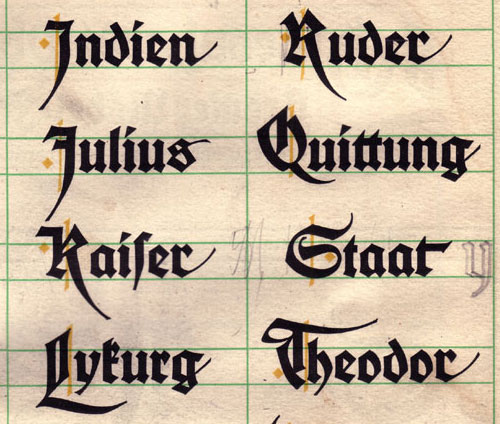 Indien
Julius
Kaiſer
Lykurg
Ruder
Quittung
Staat
Theodor